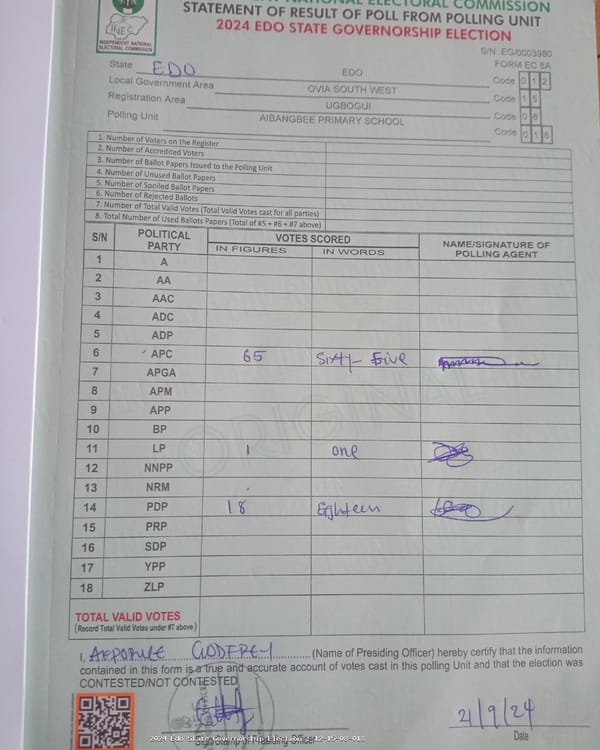 INDEPENDENT NATIONAL ELECTORAL COMMISSION
STATEMENT OF RESULT OF POLL FROM POLLING UNIT
2024 EDO STATE GOVERNORSHIP ELECTION
INEC
INDEPENDENT NATIONAL
ELECTORAL COMMISSION
S/N: EG/0003980
FORM EC 8A
State EDO EDO Code 0 1 2
Local Government Area OVIA SOUTH WEST Code 1 5
Registration Area UGBOGUI Code 0 8
Polling Unit AIBANGBEE PRIMARY SCHOOL Code 0 1 8
1. Number of Voters on the Register
2. Number of Accredited Voters
3. Number of Ballot Papers Issued to the Polling Unit
4. Number of Unused Ballot Papers
5. Number of Spoiled Ballot Papers
6. Number of Rejected Ballots
7. Number of Total Valid Votes (Total Valid Votes cast for all parties)
8. Total Number of Used Ballots Papers (Total of #5 + #6 + #7 above)
S/N POLITICAL PARTY VOTES SCORED NAME/SIGNATURE OF POLLING AGENT
IN FIGURES IN WORDS
1 A
2 AA
3 AAC
4 ADC
5 ADP
6 APC 65 Sixty-Five
7 APGA
8 APM
9 APP
10 BP
11 LP 1 one
12 NNPP
13 NRM
14 PDP 18 Eighteen
15 PRP
16 SDP
17 YPP
18 ZLP
ORIGINAL
TOTAL VALID VOTES
(Record Total Valid Votes under #7 above)
I, GODFREY (Name of Presiding Officer) hereby certify that the information
contained in this form is a true and accurate account of votes cast in this polling Unit and that the election was
CONTESTED/NOT CONTESTED
21/9/24
Date
2024 Edo State Governorship Election - 12-15-08-018
Sign/Stamp of Presiding Officer